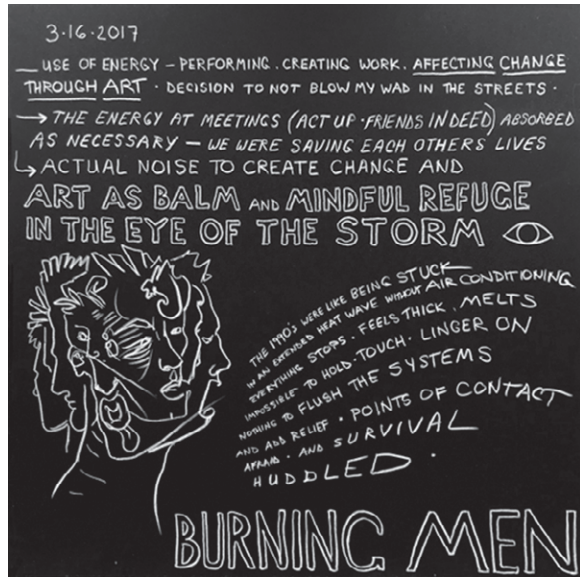 3·16·2017
— USE OF ENERGY – PERFORMING. CREATING WORK. AFFECTING CHANGE
THROUGH ART · DECISION TO NOT BLOW MY WAD IN THE STREETS ·
→ THE ENERGY AT MEETINGS (ACT UP · FRIENDS INDEED) ABSORBED
AS NECESSARY — WE WERE SAVING EACH OTHERS LIVES
↳ ACTUAL NOISE TO CREATE CHANGE AND
ART AS BALM AND MINDFUL REFUGE
IN THE EYE OF THE STORM
THE 1990'S WERE LIKE BEING STUCK
IN AN EXTENDED HEAT WAVE WITHOUT AIR CONDITIONING
EVERYTHING STOPS. FEELS THICK. MELTS
IMPOSSIBLE TO HOLD. TOUCH. LINGER ON
NOTHING TO FLUSH THE SYSTEMS
AND ADD RELIEF · POINTS OF CONTACT
AFRAID · AND SURVIVAL
HUDDLED ·
BURNING MEN